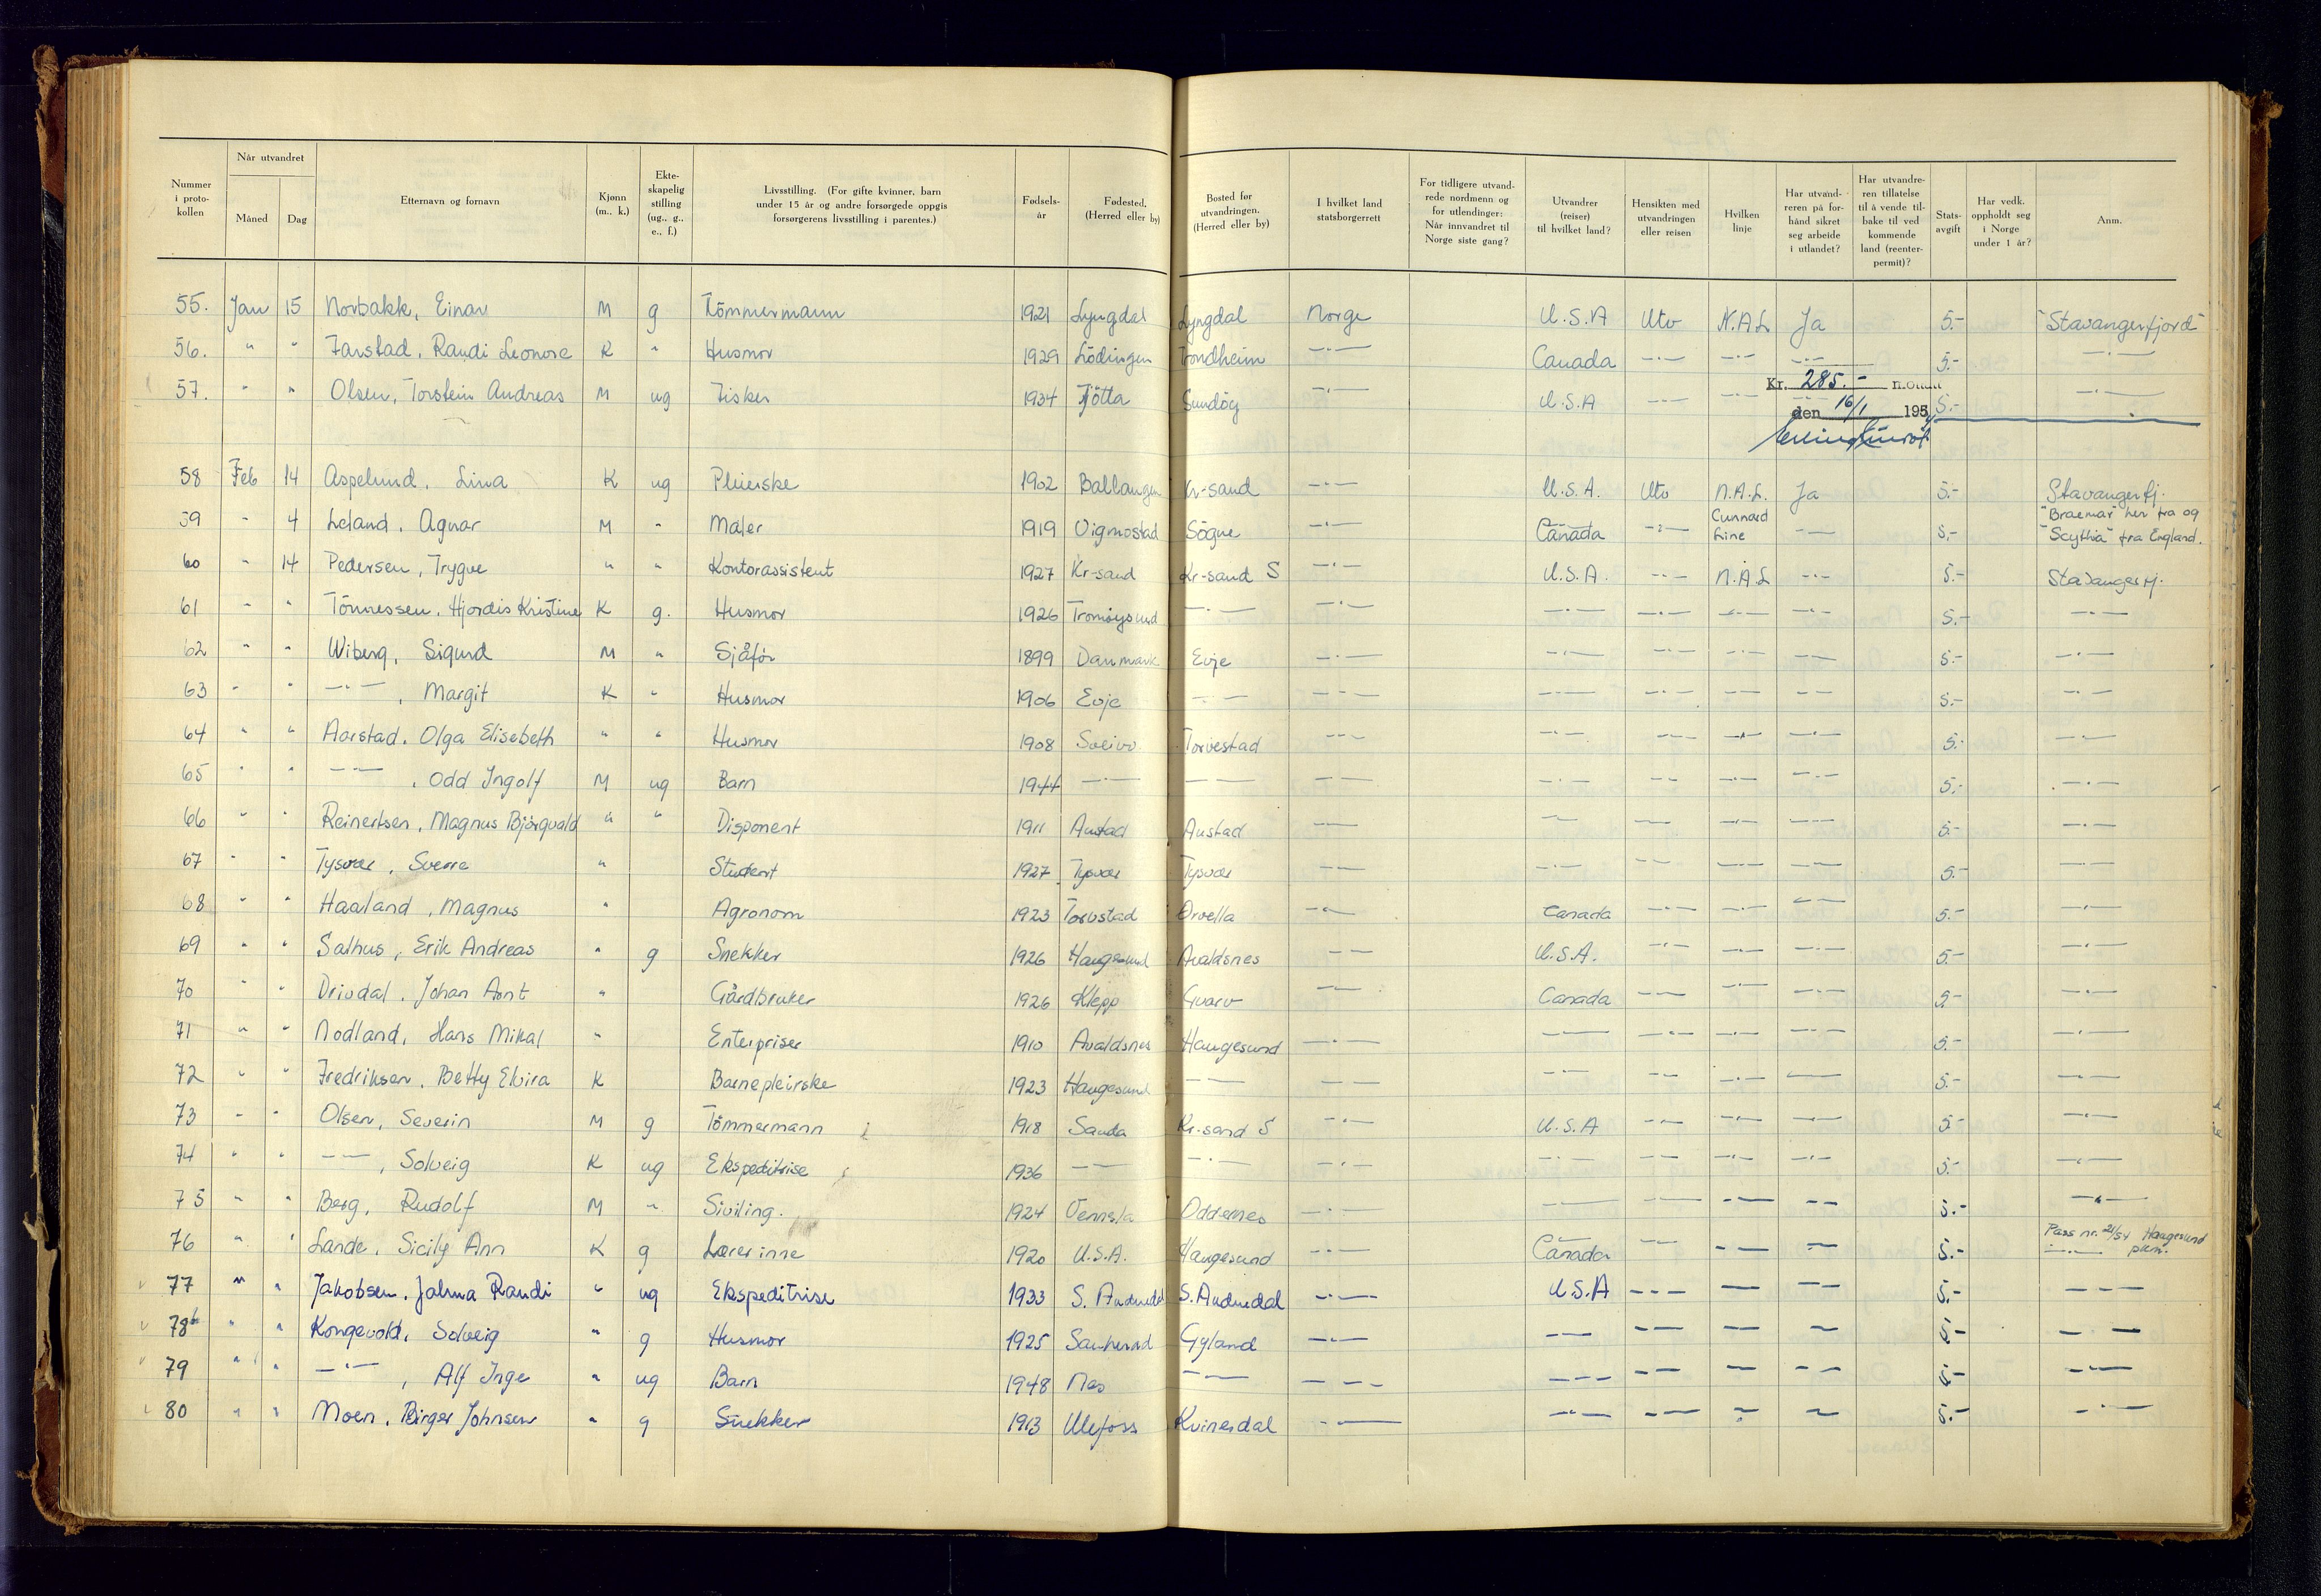 Nummer i proto-kollen | Når utvandret Måned | Dag | Etternavn og fornavn | Kjønn (m., k.) | Ekte-skapelig stilling (ug., g., e., f.) | Livsstilling. (For gifte kvinner, barn under 15 år og andre forsørgede oppgis forsørgerens livsstilling i parentes.) | Fødsels-år | Fødested. (Herred eller by) | Bosted før utvandringen. (Herred eller by) | I hvilket land statsborgerrett | For tidligere utvand-rede nordmenn og for utlendinger: Når innvandret til Norge siste gang? | Utvandrer (reiser) til hvilket land? | Hensikten med utvandringen eller reisen | Hvilken linje | Har utvand-reren på for-hånd sikret seg arbeide i utlandet? | Har utvandre-ren tillatelse til å vende til-bake til ved kommende land (reenter-permit)? | Stats-avgift | Har vedk. oppholdt seg i Norge under 1 år? | Anm.
55. Jan 15 Norbakk, Einar M g Tömmermann 1921 Lyngdal Lyngdal Norge U.S.A Utv N.A.L Ja 5.- "Stavangerfjord"
56. " " Farstad, Randi Leonore K " Husmor 1929 Lödingen Trondheim -"- Canada -"- -"- -"- 5.- -"-
57. " " Olsen, Torstein Andreas M ug Fisker 1934 Tjötta Sundöy -"- U.S.A -"- -"- 5.- -"-
Kr. 285.- mottatt
den 16/1 1954
58 Feb 14 Aspelund, Lina K ug Pleierske 1902 Ballangen Kr-sand -"- U.S.A. Utv N.A.L. Ja 5.- Stavangerfj.
59 - 4 Leland, Agnar M " Maler 1919 Vigmostad Sögne -"- Canada -"- Cunnard Line -"- 5,- "Braemar" her fra og "Scythia" fra England.
60 - 14 Pedersen, Trygve " " Kontorassistent 1927 Kr-sand Kr-sand S -"- U.S.A. -"- N.A.L -"- 5.- Stavangerfj.
61 - " Tönnessen, Hjordis Kristine K g. Husmor 1926 Tromöysund -"- -"- -"- -"- -"- -"- 5.- -"-
62 " " Wiberg, Sigurd M " Sjåfør 1899 Danmark Evje -"- -"- -"- -"- -"- 5.- -"-
63 " " -"-, Margit K " Husmor 1906 Evje -"- -"- -"- -"- -"- -"- 5.- -"-
64 " " Aarstad, Olga Elisebeth " " Husmor 1908 Torvestad -"- -"- -"- -"- -"- 5.- -"-
65 " " -"-, Odd Ingolf M ug Barn 1944 -"- -"- -"- -"- -"- -"- -"- 5.- -"-
66 " " Reinertsen, Magnus Björgvald " " Disponent 1911 Austad Austad -"- -"- -"- -"- -"- 5.- -"-
67 " " Tysvær, Sverre " Student 1927 Tysvær Tysvær -"- -"- -"- -"- -"- 5.- -"-
68 " " Haaland, Magnus " Agronom 1923 Torvstad -"- Canada -"- -"- -"- 5.- -"-
69 " " Salhus, Erik Andreas " g Snekker 1926 Haugesund Avaldsnes -"- U.S.A. -"- -"- -"- 5.- -"-
70 " " Drivdal, Johan Arnt " Gårdbruker 1926 Klepp -"- Canada -"- -"- -"- 5.- -"-
71 " " Nodland, Hans Mikal " Enterpriser 1910 Avaldsnes Haugesund -"- -"- -"- -"- -"- 5.- -"-
72 " " Fredriksen, Betty Elvira K Barnepleirske 1923 Haugesund -"- -"- -"- -"- -"- -"- 5.- -"-
73 " " Olsen, Severin M g Tömmermann 1918 Sauda Kr-sand S -"- U.S.A -"- -"- -"- 5.- -"-
74 " " -"-, Solveig K ug Ekspeditrise 1936 -"- -"- -"- -"- -"- -"- -"- 5.- -"-
75 " " Berg, Rudolf M " Siviling. 1924 Vennesla Oddernes -"- -"- -"- -"- -"- 5.- -"-
76 " " Lande, Sicily Ann K g Lærerinne 1920 U.S.A. Haugesund -"- Canada -"- -"- -"- 5.- Pass nr. 21/54 Haugesund pkm. -"-
77 " " Jakobsen, Jalma Randi " ug Ekspeditrise 1933 S. Audnedal S. Audnedal -"- U.S.A -"- -"- -"- 5.- -"-
78 " " Kongevold, Solveig " g Husmor 1925 Sauherad Gyland -"- -"- -"- -"- -"- 5.- -"-
79 " " -"-, Alf Inge " ug Barn 1948 Nes -"- -"- -"- -"- -"- -"- 5.- -"-
80 " " Moen, Birger Johnsen " g Snekker 1913 Ulefoss Kvinesdal -"- -"- -"- -"- -"- 5.- -"-